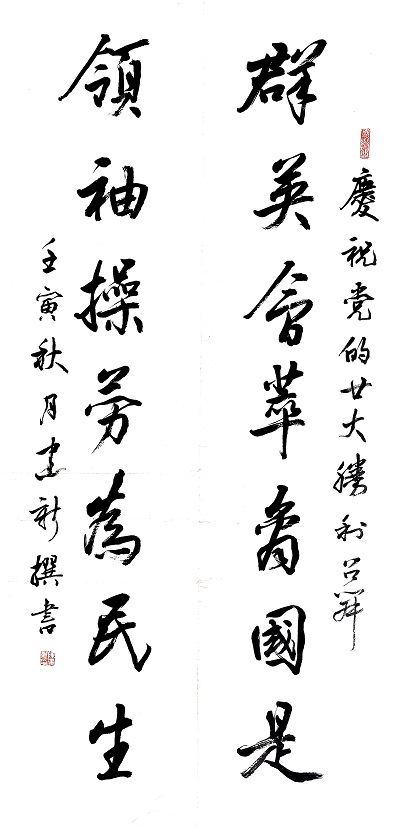 慶祝党的廿大勝利召開
群英會萃商國是
領袖操劳為民生
壬寅秋月建新撰書